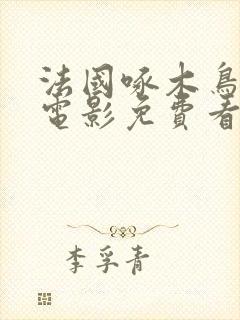 法國啄木鳥
電影免費看
李孚青